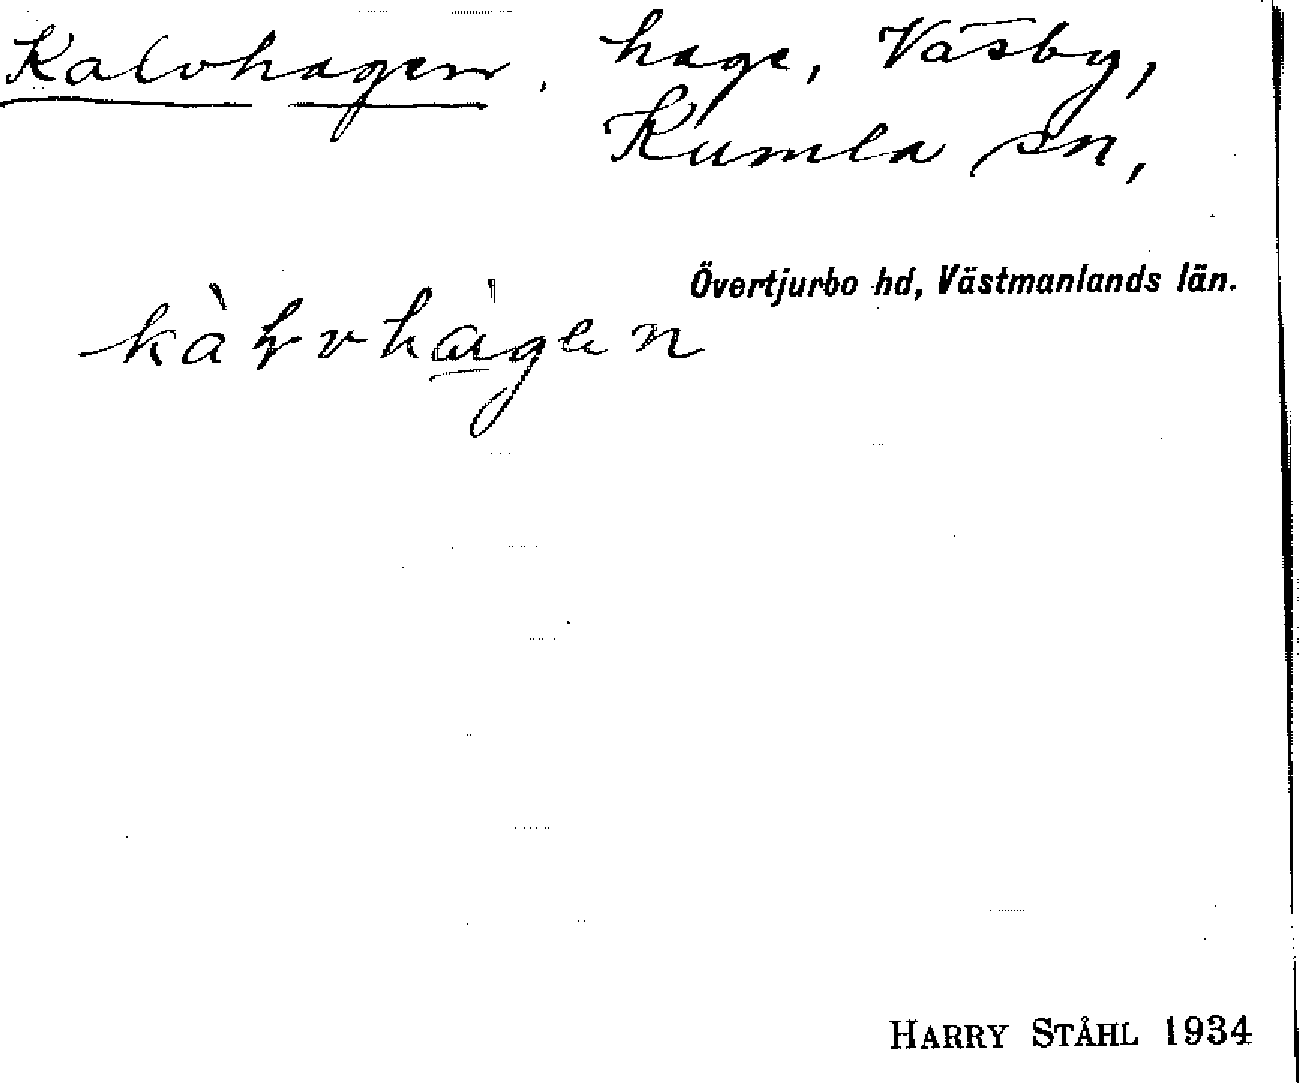 Kalvhagen, hage, Väsby,
Kumla sn,
Övertjurbo hd, Västmanlands län.
HARRY STÅHL 1934